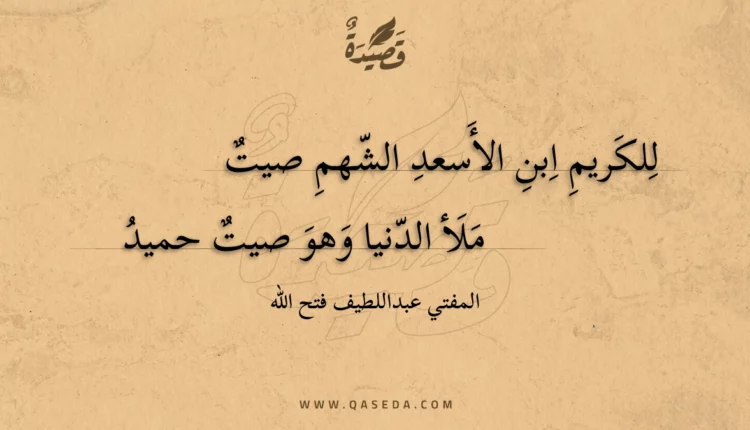 قَصِيْدَةٌ
لِلكَريمِ اِبنِ الأَسعدِ الشّهمِ صيتٌ
مَلَأ الدّنيا وَهوَ صيتٌ حميدُ
المفتي عبداللطيف فتح الله
WWW.QASEDA.COM